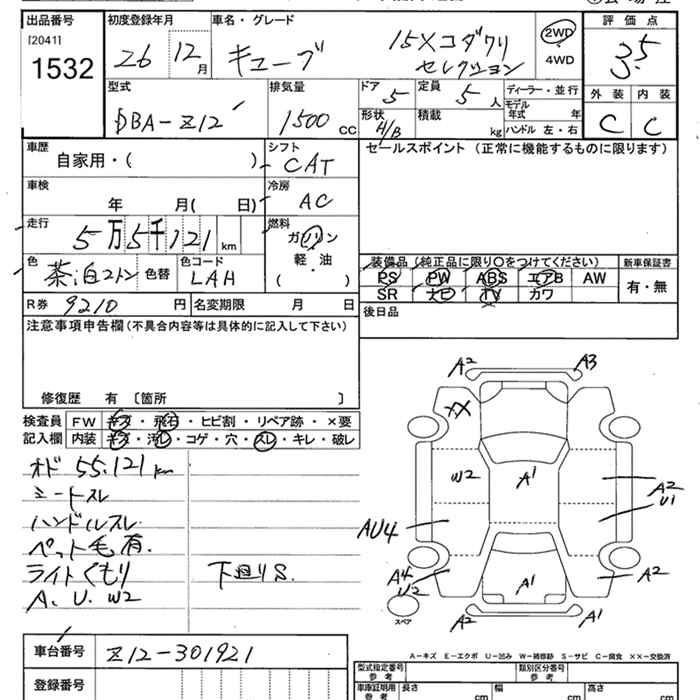 出品番号
[2041]
1532
初度登録年月
26 12月
車名・グレード
キューブ 15Xコダワリ
セレクション
2WD
4WD
評価点
3.5
型式
DBA-Z12
排気量
1500 CC
ドア
5
定員
5人
形状
H/B
積載
kg
ディーラー・並行
モデル年式 年
ハンドル 左・右
外装 内装
C C
車歴
自家用・( )
シフト
CAT
車検
年 月( 日)
冷房
AC
走行
5万5千121 km
燃料
ガソリン
軽・油
( )
色
茶泊2トン
色替
色コード
LAH
R券 9210 円
名変期限 月 日
セールスポイント(正常に機能するものに限ります)
装備品(純正品に限り○をつけてください)
PS PW ABS エアB AW
SR ナビ TV カワ
新車保証書
有・無
後日品
注意事項申告欄(不具合内容等は具体的に記入して下さい)
修復歴 有〔箇所 〕
検査員
記入欄
FW キズ・飛石・ヒビ割・リペア跡・×要
内装 キズ・汚レ・コゲ・穴・スレ・キレ・破レ
オド 55.121 km
シートスレ
ハンドルスレ
ペット毛有.
ライトくもり 下廻りS.
A. U. W2
A2 A3
XX
W2 A1
A2
U1
AU4
A4
U2
A1
A2
スペア
A2 A1
A-キズ E-エクボ U-凹み W-補修跡 S-サビ C-腐食 XX-交換済
車台番号 Z12-301921
登録番号
型式指定番号
参考
類別区分番号
参考
車庫証明用
参考
長さ cm
幅 cm
高さ cm